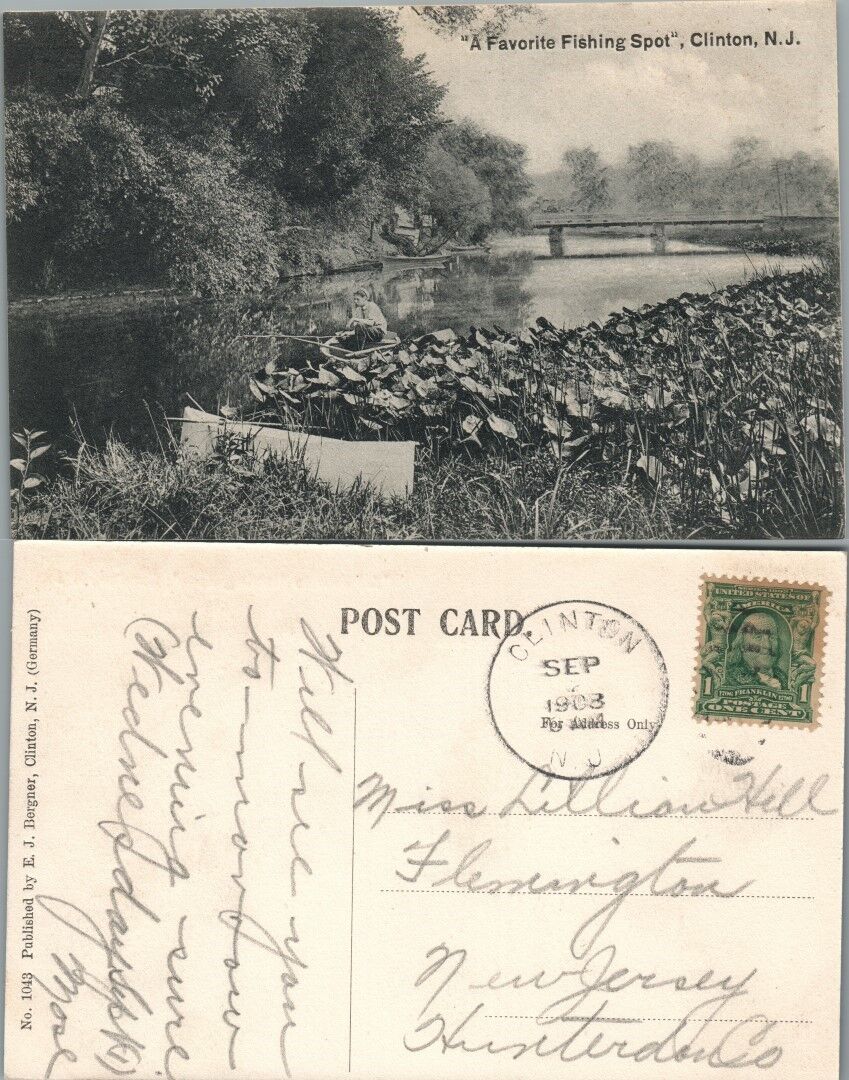 "A Favorite Fishing Spot", Clinton, N.J.
No. 1043 Published by E. J. Bergner, Clinton, N. J. (Germany)
POST CARD
CLINTON
SEP
1908
N.J.
For Address Only.
SERIES 1902
UNITED STATES OF
AMERICA
1706 FRANKLIN 1790
1 1
POSTAGE
ONE CENT
Will see you
to-morrow
evening sure
(Wednesday
Miss Lillian Hill
Flemington
New Jersey
Hunterdon Co